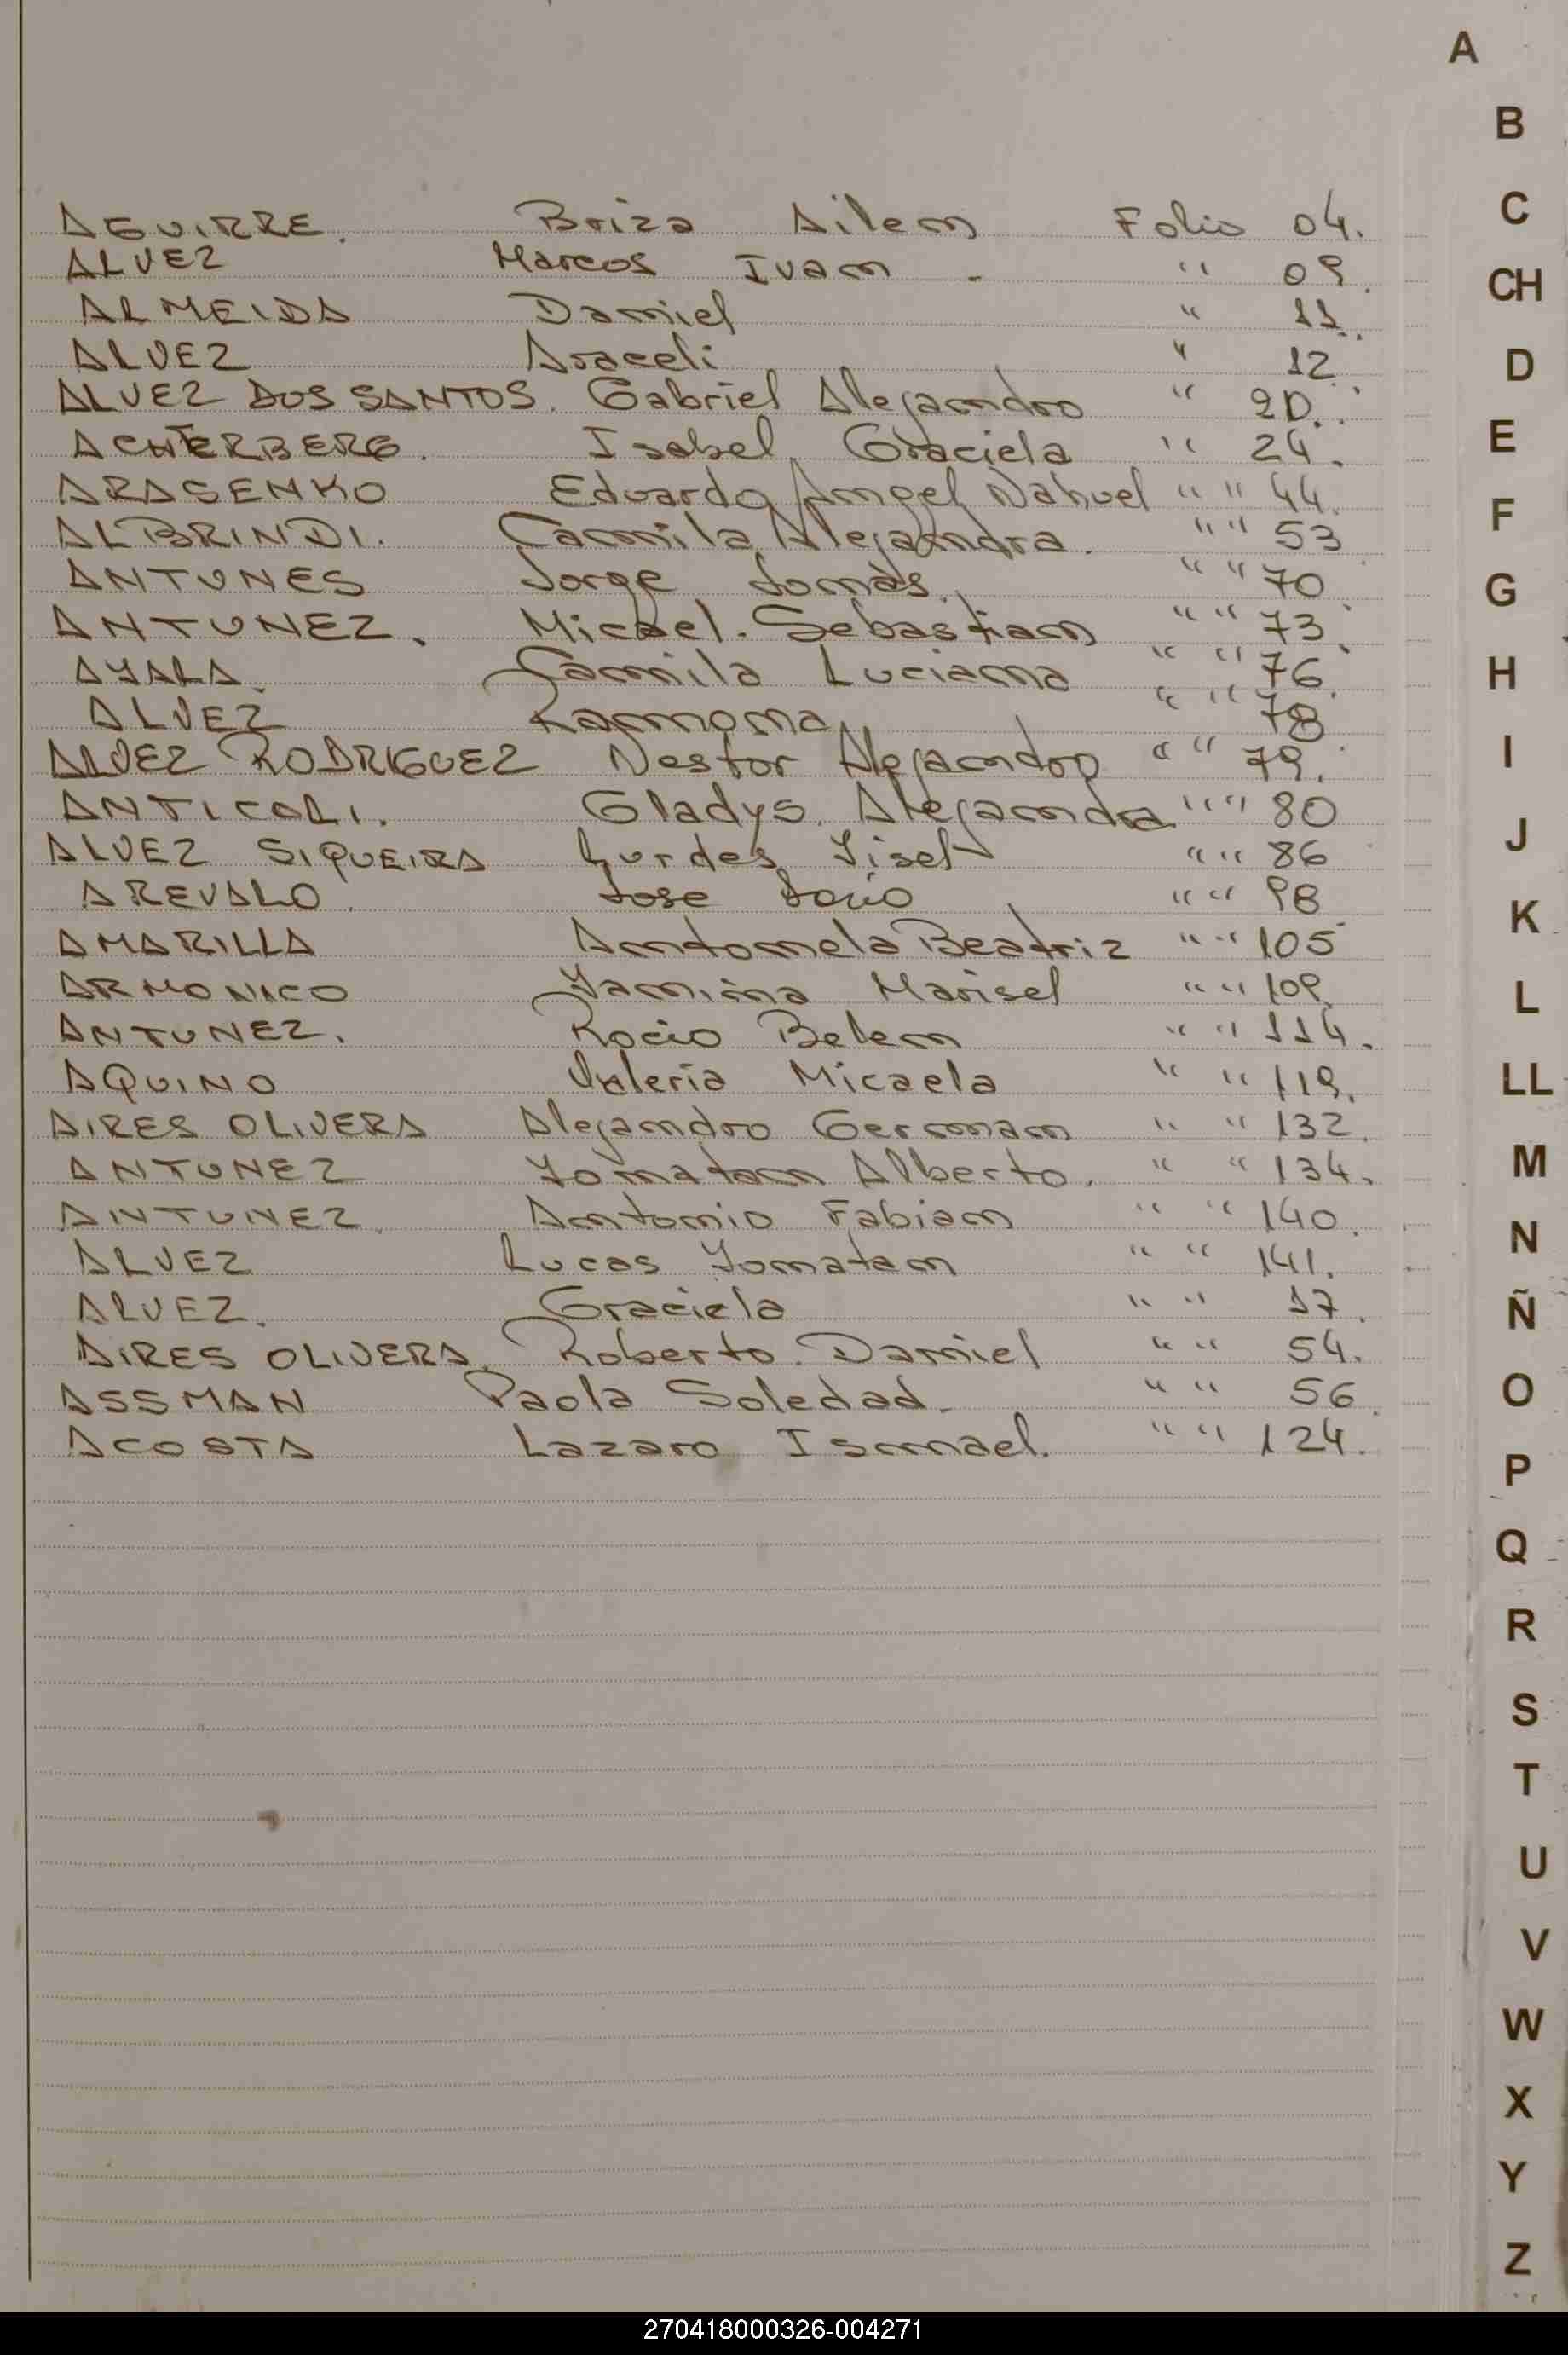 A
B
C
CH
D
E
F
G
H
I
J
K
L
LL
M
N
Ñ
O
P
Q
R
S
T
U
V
W
X
Y
Z
AGUIRRE. Briza Ailem Folio 04.
ALVEZ Marcos Ivam. " 09.
ALMEIDA Daniel " 11.
ALVEZ Araceli " 12
ALVEZ DOS SANTOS. Gabriel Alejamdro " 20.
ACHTERBERG. Isabel Graciela " 24.
ARASENKO Eduardo Amgel Nahuel " " 44.
ALBRINDI. Camila Alejamdra. " " 53
ANTUNES Jorge Jomás. " " 70
ANTUNEZ. Micael. Sebastiam " " 73
AYALA. Camila Luciama " " 76.
ALVEZ Ramnoma " " 78
ALVEZ RODRIGUEZ Nestor Alejamdro " " 79.
ANTICOLI. Gladys. Alejamdra " " 80
ALVEZ SIQUEIRA Lurdes Yiset " " 86
AREVALO. Jose " " 98
AMARILLA Amtomela Beatriz " " 105
ARMONICO Yamina Marisel " " 109.
ANTUNEZ. Rocio Belem " " 114.
AQUINO Valeria Micaela " " 119.
AIRES OLIVERA Alejamdro Germam " " 132.
ANTUNEZ Yomatam Alberto. " " 134.
ANTUNEZ. Amtomio Fabiam " " 140.
ALVEZ Lucas Yomatam " " 141.
ALVEZ. Graciela " " 17.
AIRES OLIVERA. Roberto. Daniel " " 54.
ASSMAN Paola Soledad. " " 56.
ACOSTA Lazaro Ismael. " " 124.
270418000326-004271